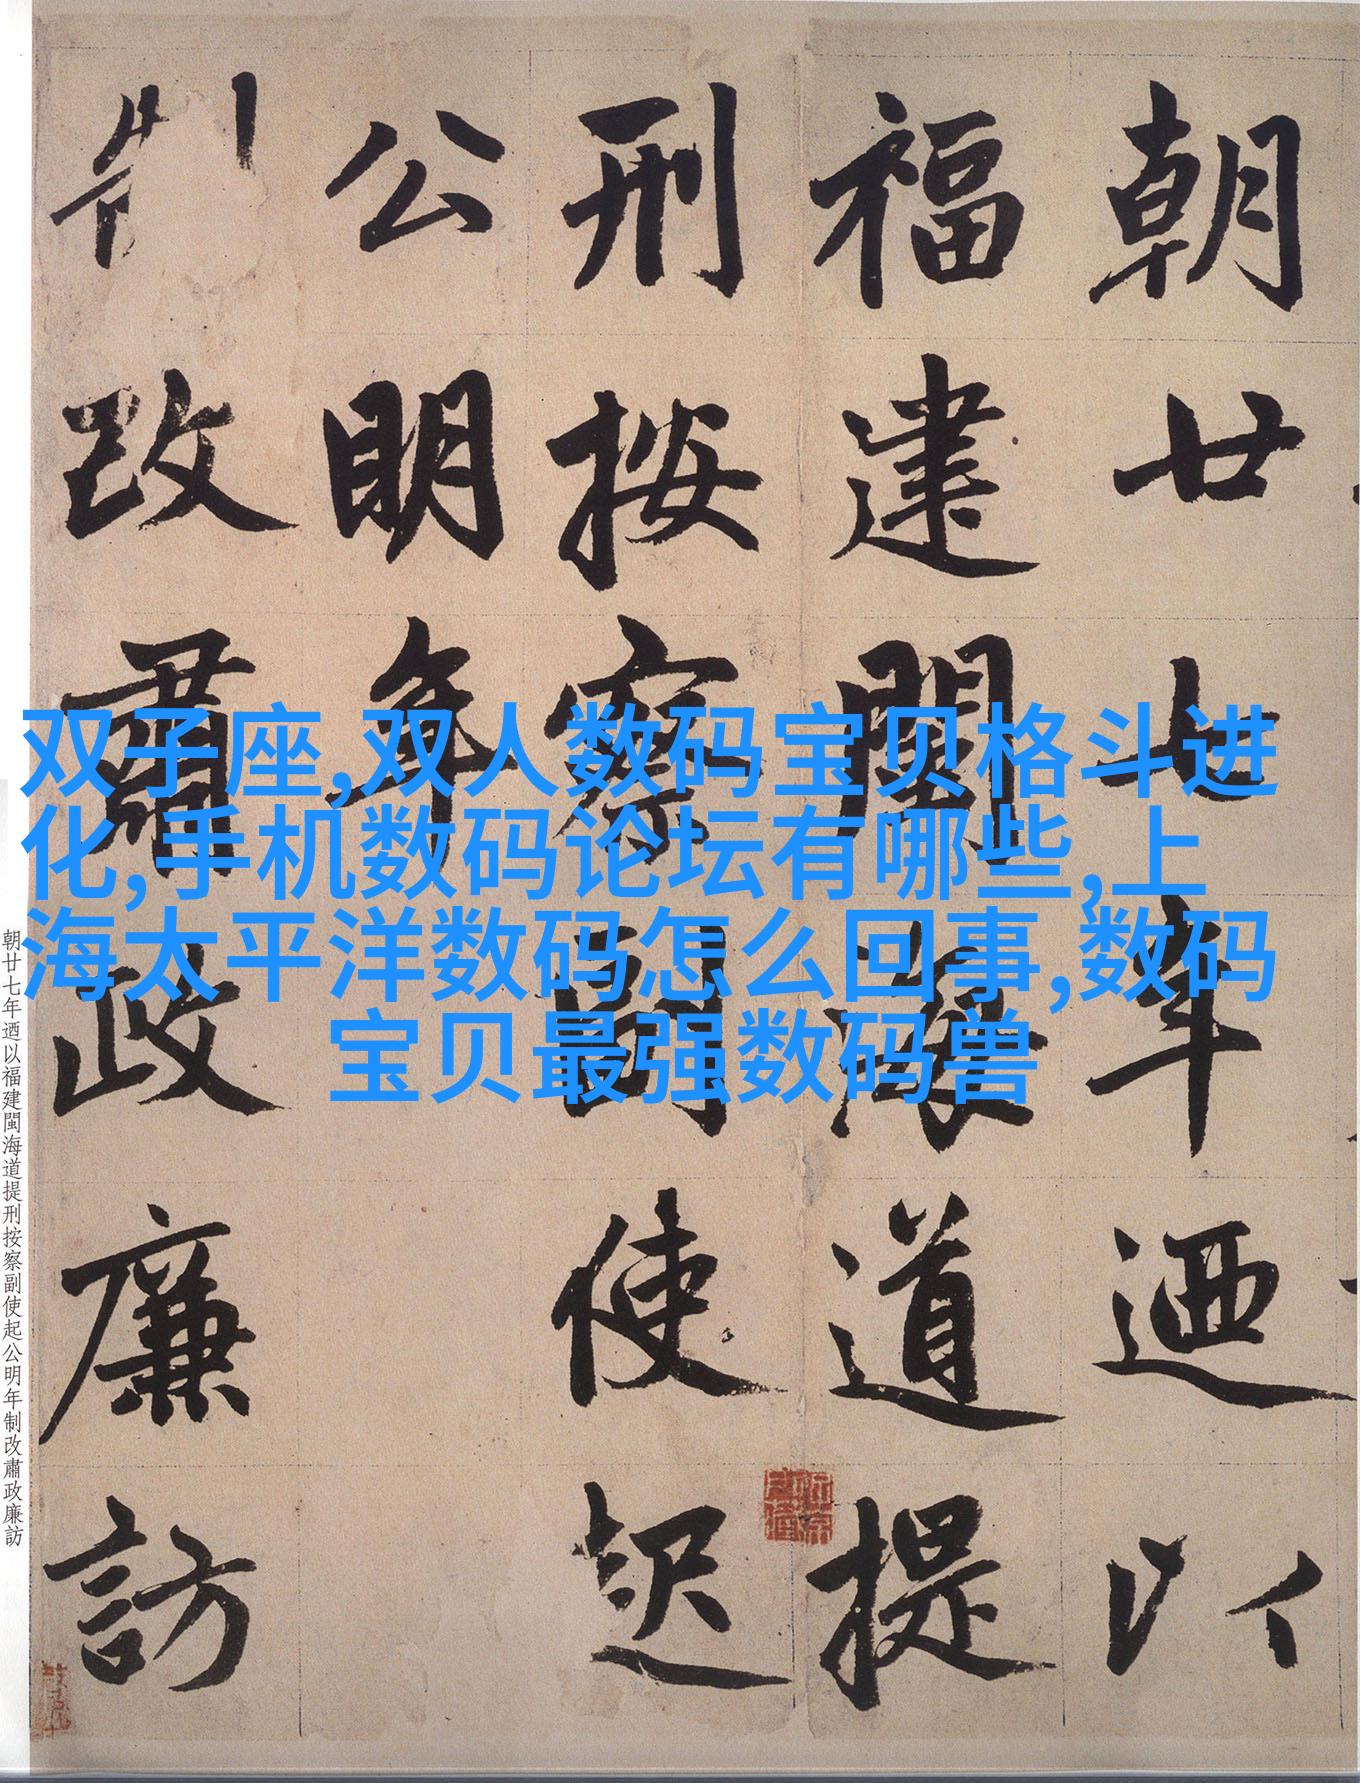 朝廿七年迺以
福建閩海道提
刑按察副使起
公明年
制改肅政廉訪
双子座,双人数码宝贝格斗进
化,手机数码论坛有哪些,上
海太平洋数码怎么回事,数码
宝贝最强数码兽
朝廿七年迺以福建閩海道提刑按察副使起公明年制改肅政廉訪